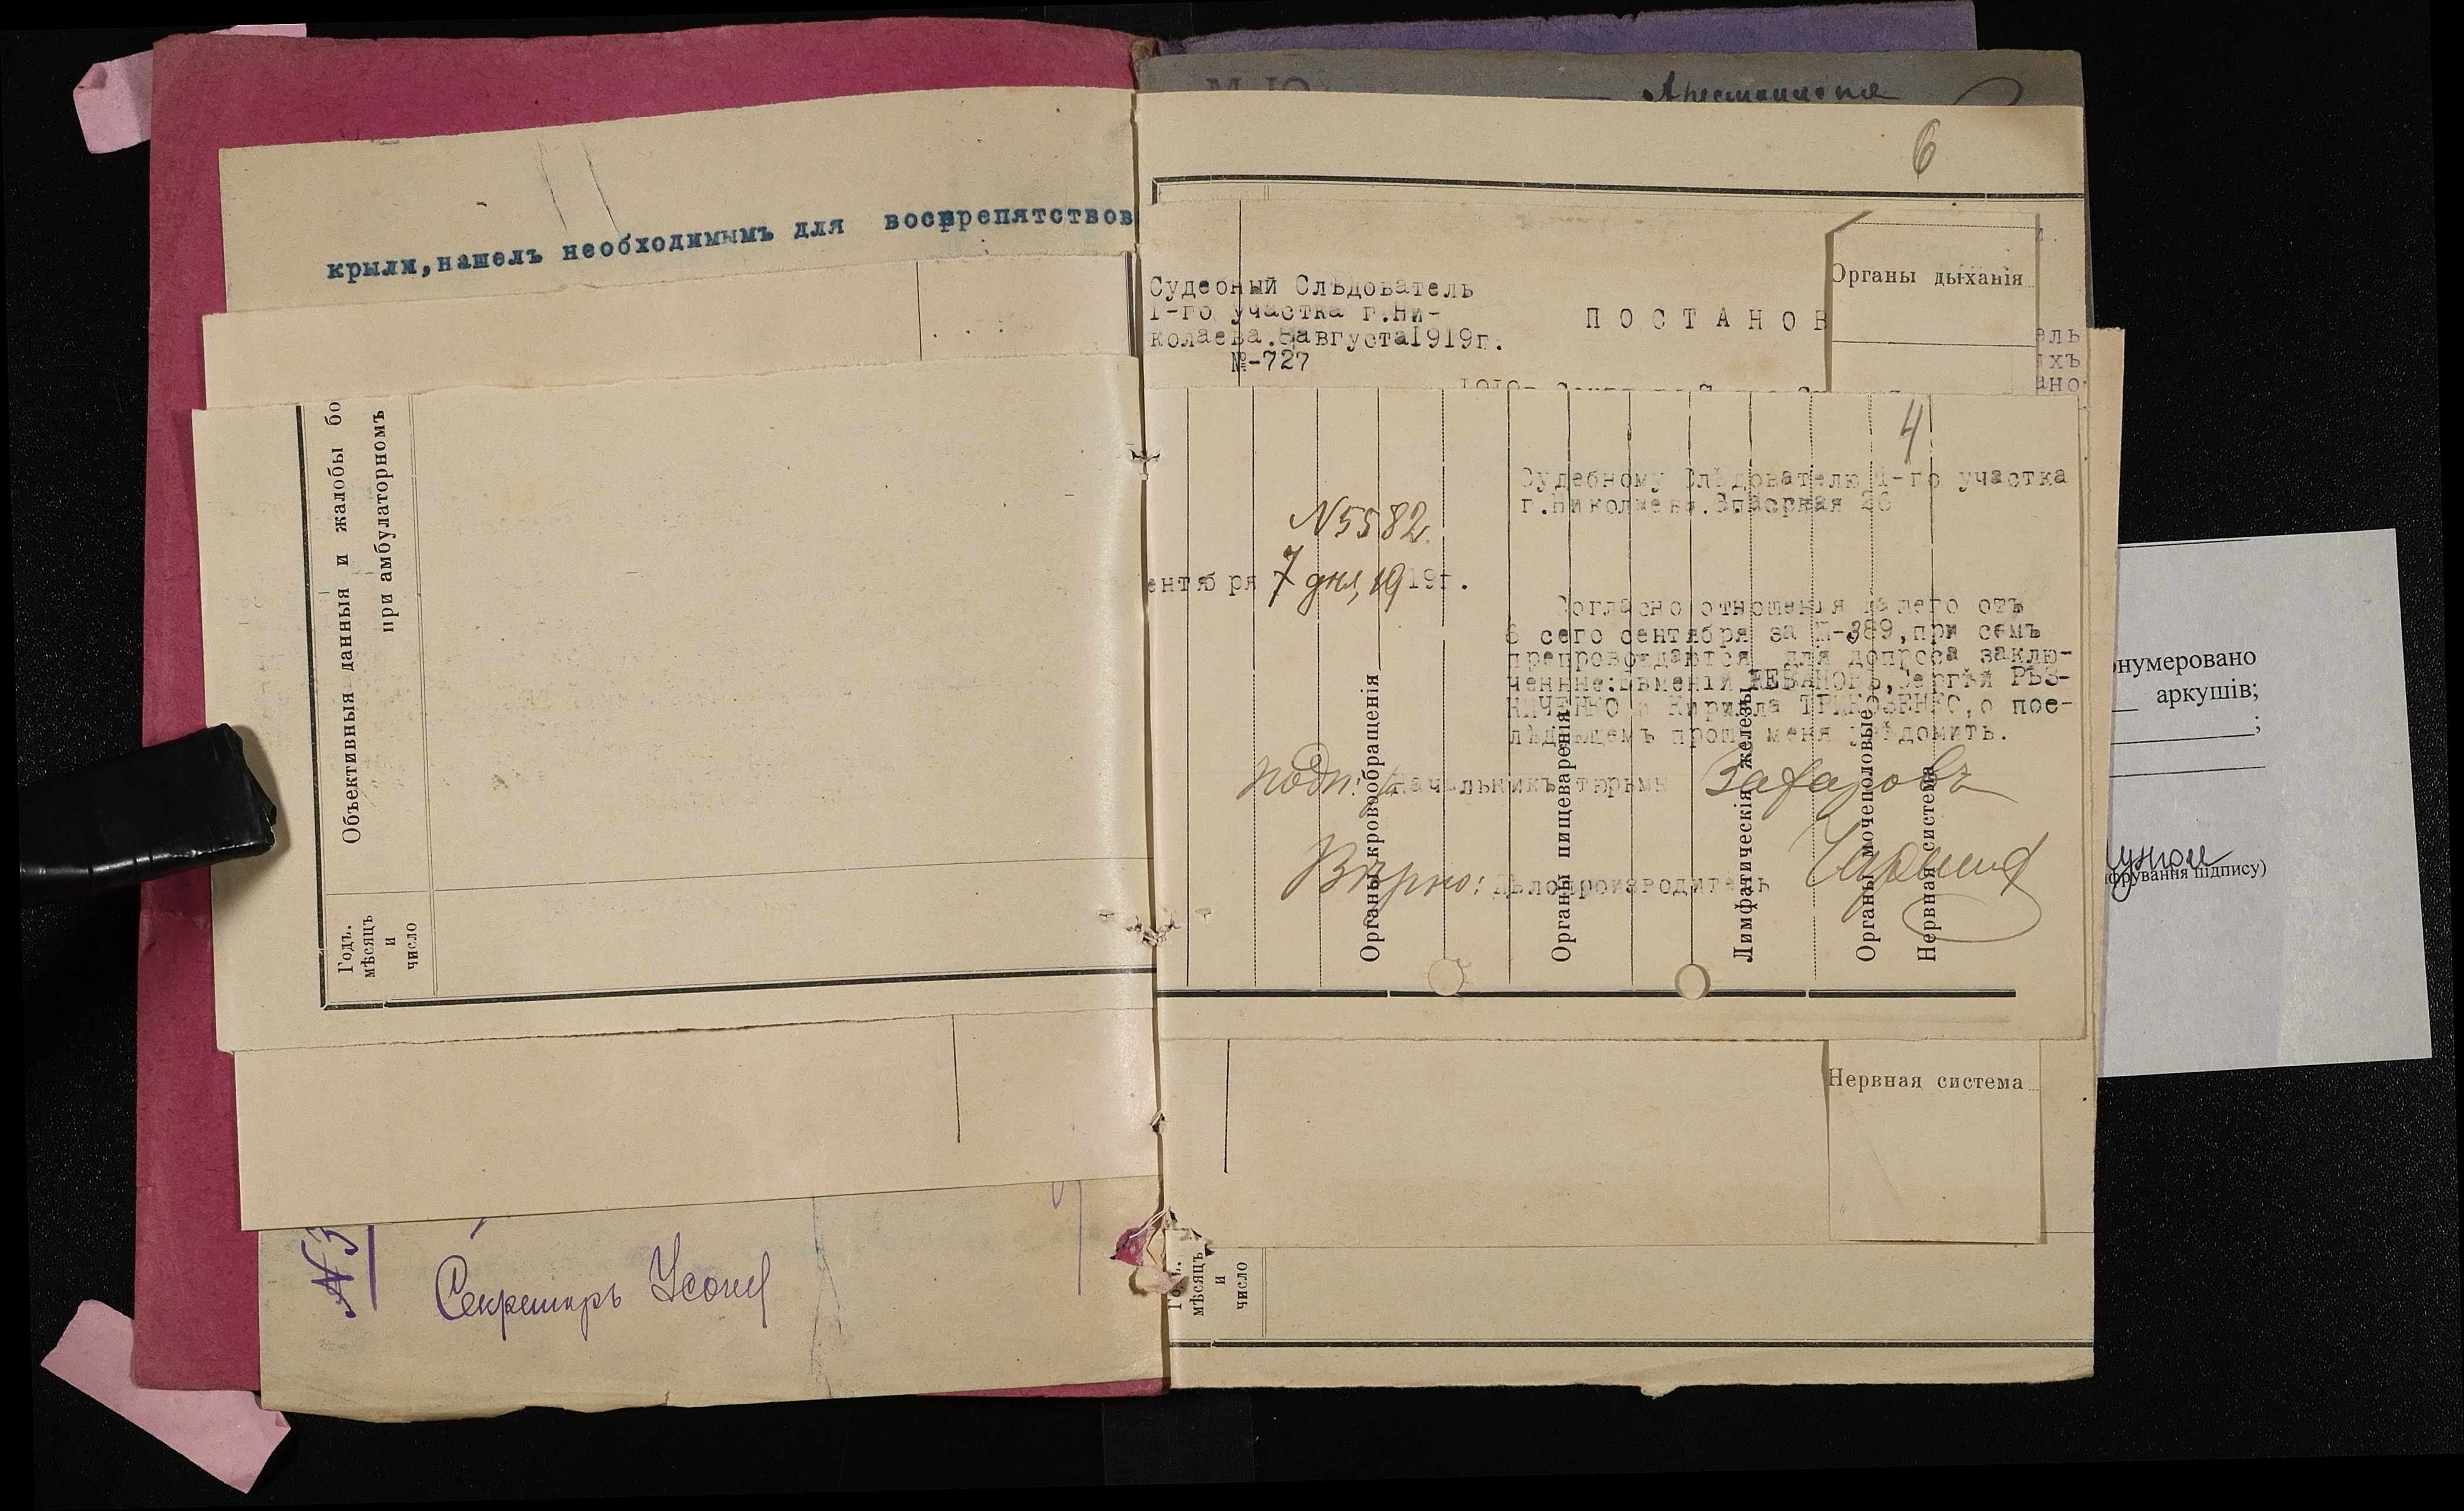 крыли,нашелъ необходимымъ для воспрепятствов
Объективныя данныя и жалобы бо
при амбулаторномъ
Годъ.
мѣсяцъ
и
число
Секретарь
6
Судебный Слѣдователь
1-го участка г.Ни-
колаева.8августа1919г.
№-727
ПОСТАНОВ
Органы дыханія
ель
ихъ
ано
4
Судебному Слѣдователю 1-го участка
г.Николаева.Спасская 26
N5582
ентября 7 дня, 1919г.
Согласно отношенія вашего отъ
6 сего сентября за №-389,при семъ
препровождаются для допроса заклю-
ченные:Евменій Сергѣй РѢЗ-
НИЧЕНКО и Кирилла о пос-
лѣдующемъ прошу меня увѣдомить.
подп: Начальникъ тюрьмы
Вѣрно: Дѣлопроизводитель
Органы кровообращенія
Органы пищеваренія
Лимфатическія железы
Органы мочеполовые
Нервная система
Нервная система
Годъ.
мѣсяцъ
и
число
онумеровано
аркушів;
;
фрування підпису)